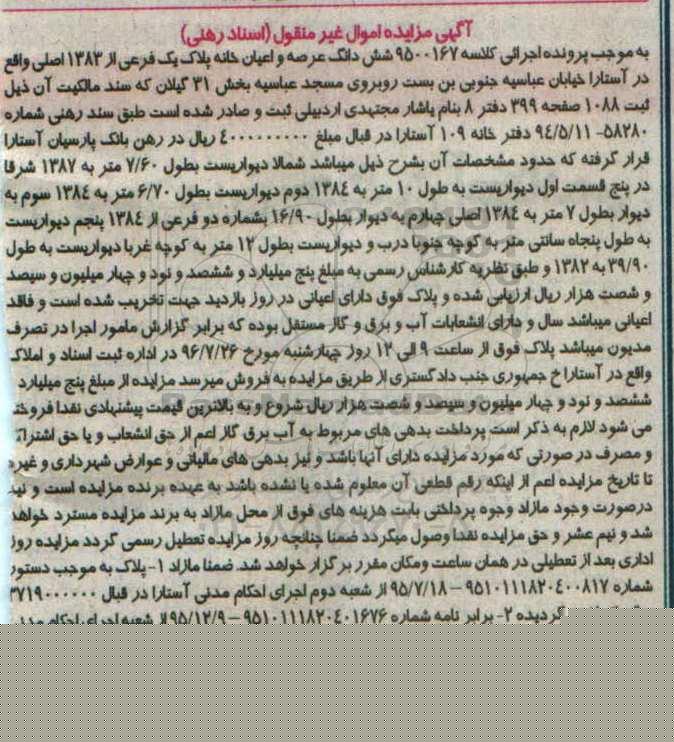 آگهی مزایده اموال غیر منقول (اسناد رهنی)
به موجب پرونده اجرائی کلاسه ۹۵۰۰۱۶۷ شش دانگ عرصه و اعیان خانه پلاک یک فرعی از ۱۳۸۳ اصلی واقع
در آستارا خیابان عباسیه جنوبی بن بست روبروی مسجد عباسیه بخش ۳۱ گیلان که سند مالکیت آن ذیل
ثبت ۱۰۸۸ صفحه ۳۹۹ دفتر ۸ بنام یاشار مجتهدی اردبیلی ثبت و صادر شده است طبق سند رهنی شماره
۵۸۲۸۰- ۹۴/۵/۱۱ دفتر خانه ۱۰۹ آستارا در قبال مبلغ ۴۰۰۰۰۰۰۰۰۰ ریال در رهن بانک پارسیان آستارا
قرار گرفته که حدود مشخصات آن بشرح ذیل میباشد شمالا دیواریست بطول ۷/۶۰ متر به ۱۳۸۷ شرقا
در پنج قسمت اول دیواریست به طول ۱۰ متر به ۱۳۸۴ دوم دیواریست بطول ۶/۷۰ متر به ۱۳۸۴ سوم به
دیوار بطول ۷ متر به ۱۳۸۴ اصلی چهارم به دیوار بطول ۱۶/۹۰ بشماره دو فرعی از ۱۳۸۴ پنجم دیواریست
به طول پنجاه سانتی متر به کوچه جنوبا درب و دیواریست بطول ۱۲ متر به کوچه غربا دیواریست به طول
۳۹/۹۰ به ۱۳۸۲ و طبق نظریه کارشناس رسمی به مبلغ پنج میلیارد و ششصد و نود و چهار میلیون و سیصد
و شصت هزار ریال ارزیابی شده و پلاک فوق دارای اعیانی در روز بازدید جهت تخریب شده است و فاقد
اعیانی میباشد سال و دارای انشعابات آب و برق و گاز مستقل بوده که برابر گزارش مامور اجرا در تصرف
مدیون میباشد پلاک فوق از ساعت ۹ الی ۱۲ روز چهارشنبه مورخ ۹۶/۷/۲۶ در اداره ثبت اسناد و املاک
واقع در آستارا خ جمهوری جنب دادگستری از طریق مزایده به فروش میرسد مزایده از مبلغ پنج میلیارد
ششصد و نود و چهار میلیون و سیصد و شصت هزار ریال شروع و به بالاترین قیمت پیشنهادی نقدا فروخته
می شود لازم به ذکر است پرداخت بدهی های مربوط به آب برق گاز اعم از حق انشعاب و یا حق اشتراک
و مصرف در صورتی که مورد مزایده دارای آنها باشد و نیز بدهی های مالیاتی و عوارض شهرداری و غیره
تا تاریخ مزایده اعم از اینکه رقم قطعی آن معلوم شده یا نشده باشد به عهده برنده مزایده است و نیز
درصورت وجود مازاد وجوه پرداختی بابت هزینه های فوق از محل مازاد به برند مزایده مسترد خواهد
شد و نیم عشر و حق مزایده نقدا وصول میگردد ضمنا چنانچه روز مزایده تعطیل رسمی گردد مزایده روز
اداری بعد از تعطیلی در همان ساعت ومکان مقرر برگزار خواهد شد. ضمنا مازاد ۱- پلاک به موجب دستور
شماره ۹۵۱۰۱۱۱۸۲۰۴۰۰۸۱۷ – ۹۵/۷/۱۸ از شعبه دوم اجرای احکام مدنی آستارا در قبال ۳۷۱۹۰۰۰۰۰۰
گردیده ۲- برابر نامه شماره ۹۵۱۰۱۱۱۸۲۰۴۰۱۶۷۶ – ۹۵/۱۲/۹ از شعبه اجرای احکام مدنی